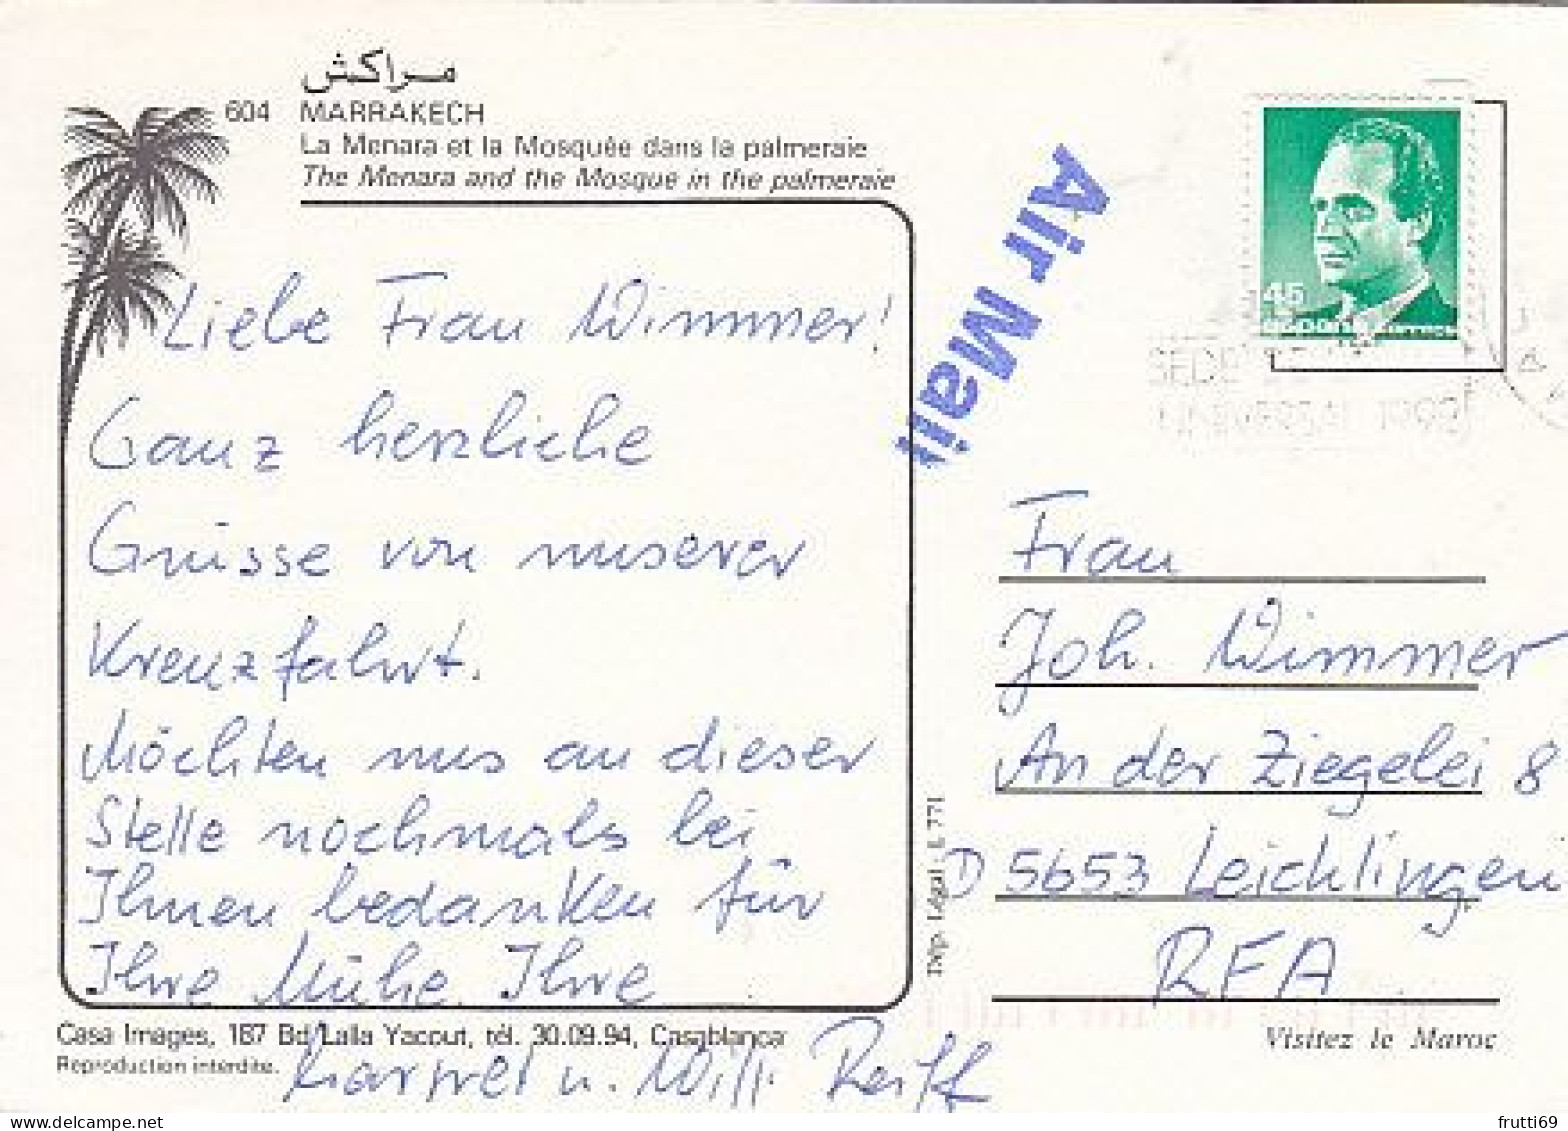 مراكش
604 MARRAKECH
La Menara et la Mosquée dans la palmeraie
The Menara and the Mosque in the palmeraie
Liebe Frau Wimmer!
Ganz herzliche
Grüsse von unserer
Kreuzfahrt.
Möchten uns an dieser
Stelle nochmals bei
Ihnen bedanken für
Ihre Mühe. Ihre
u. Willi Reiff
Casa Images, 187 Bd Lalla Yacout, tél. 30.09.94, Casablanca
Reproduction interdite.
Dép. Légal : L 771
Air Mail
45
España correos
SEDE
UNIVERSAL 1992
Frau
Joh. Wimmer
An der Ziegelei 8
D 5653 Leichlingen
RFA
Visitez le Maroc
frutti69